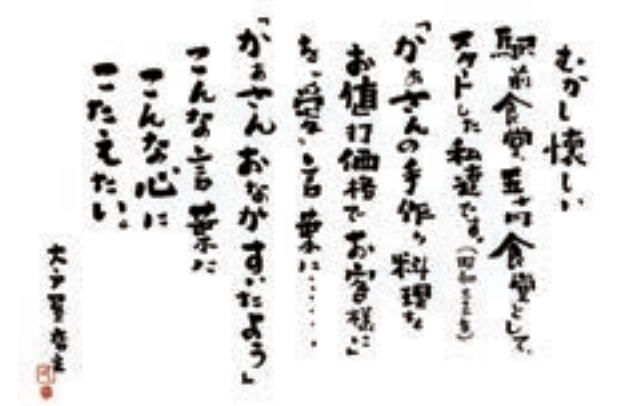 むかし懐しい
駅前食堂、五十円食堂として、
スタートした私達です。(昭和三三年)
「かぁさんの手作り料理を
お値打価格でお客様に」
を、愛、言葉に……
「かぁさんおなかすいたよう」
こんな言葉に
こんな心に
こたえたい。
大戸屋店主